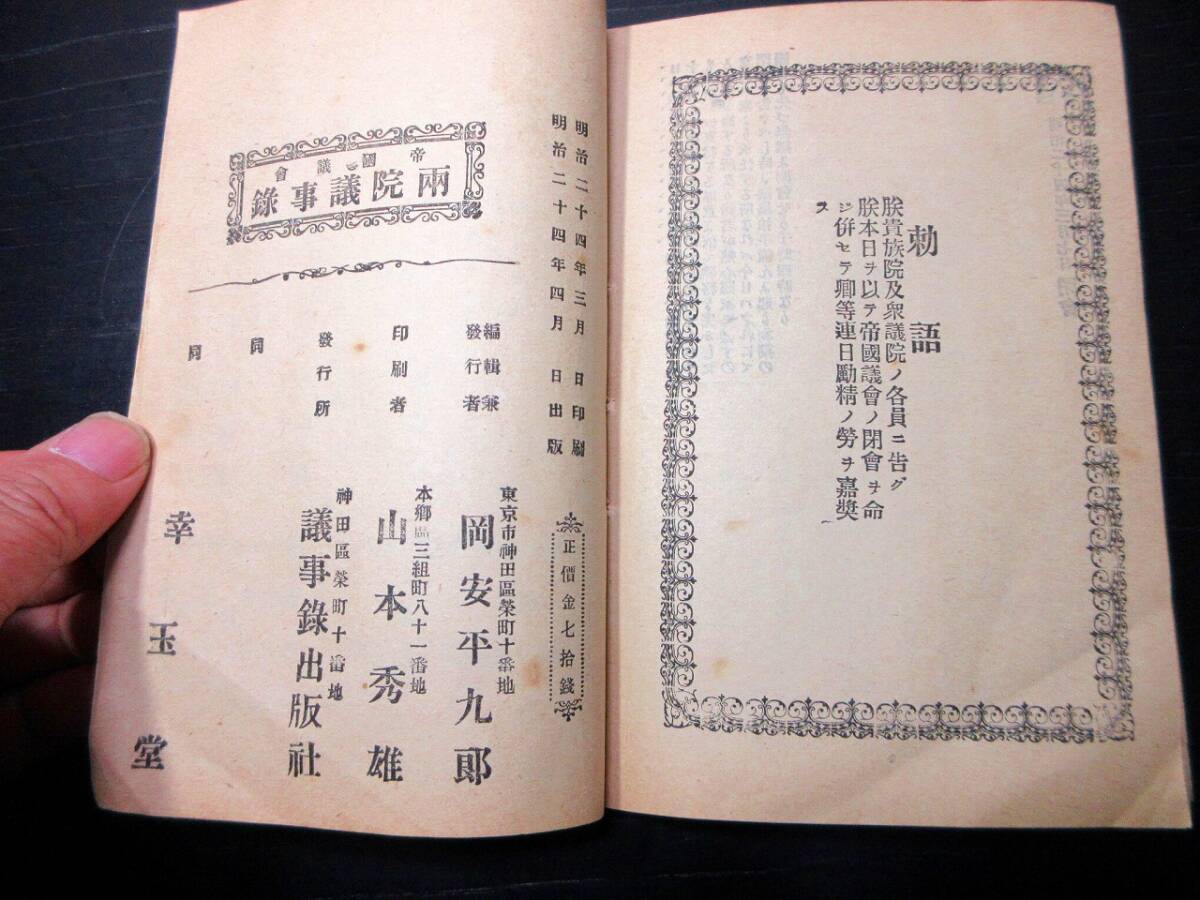 勅語
朕貴族院及衆議院ノ各員ニ告グ
朕本日ヲ以テ帝國議會ノ閉會ヲ命
ジ併セテ卿等連日勵精ノ勞ヲ嘉奬
ス
明治二十四年三月 日印刷
明治二十四年四月 日出版
正價金七拾錢
帝國議會
兩院議事錄
編輯兼
發行者
東京市神田區榮町十番地
岡安平九郎
印刷者
本鄕區三組町八十一番地
山本秀雄
發行所
神田區榮町十番地
議事錄出版社
同
同
幸玉堂